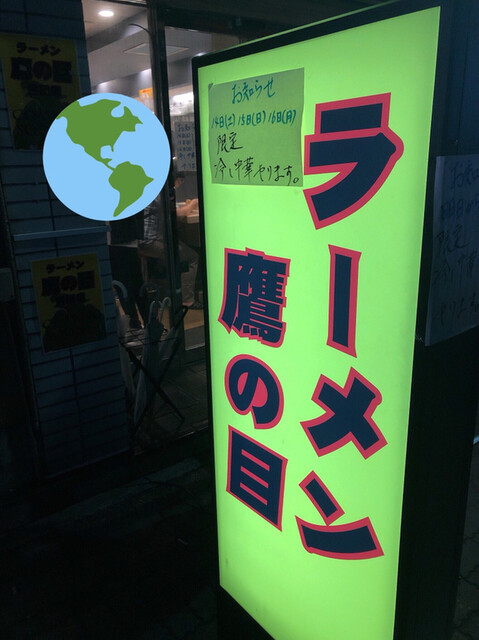 ラーメン
鷹の目
お知らせ
14日(土)15日(日)16日(月)
限定
冷し中華やります。
ラーメン
鷹の目
ラーメン
鷹の目